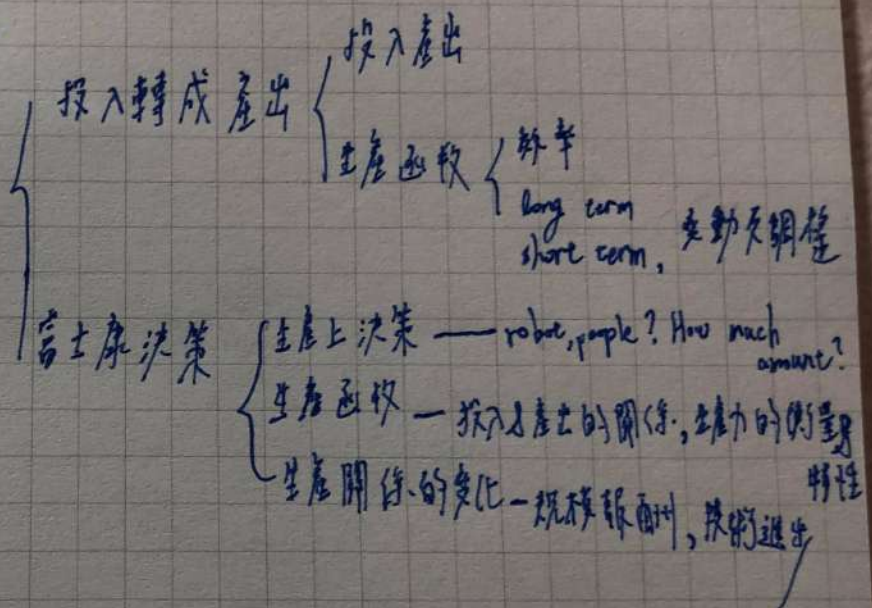 投入產出
投入轉成產出
生產函數
效率
long term
short term, 變動及調整
富士康決策
生產上決策 — robot, people? How much
amount?
生產函數 — 投入與產出的關係, 生產力的衡量與
特性
生產關係的變化 — 規模報酬, 技術進步